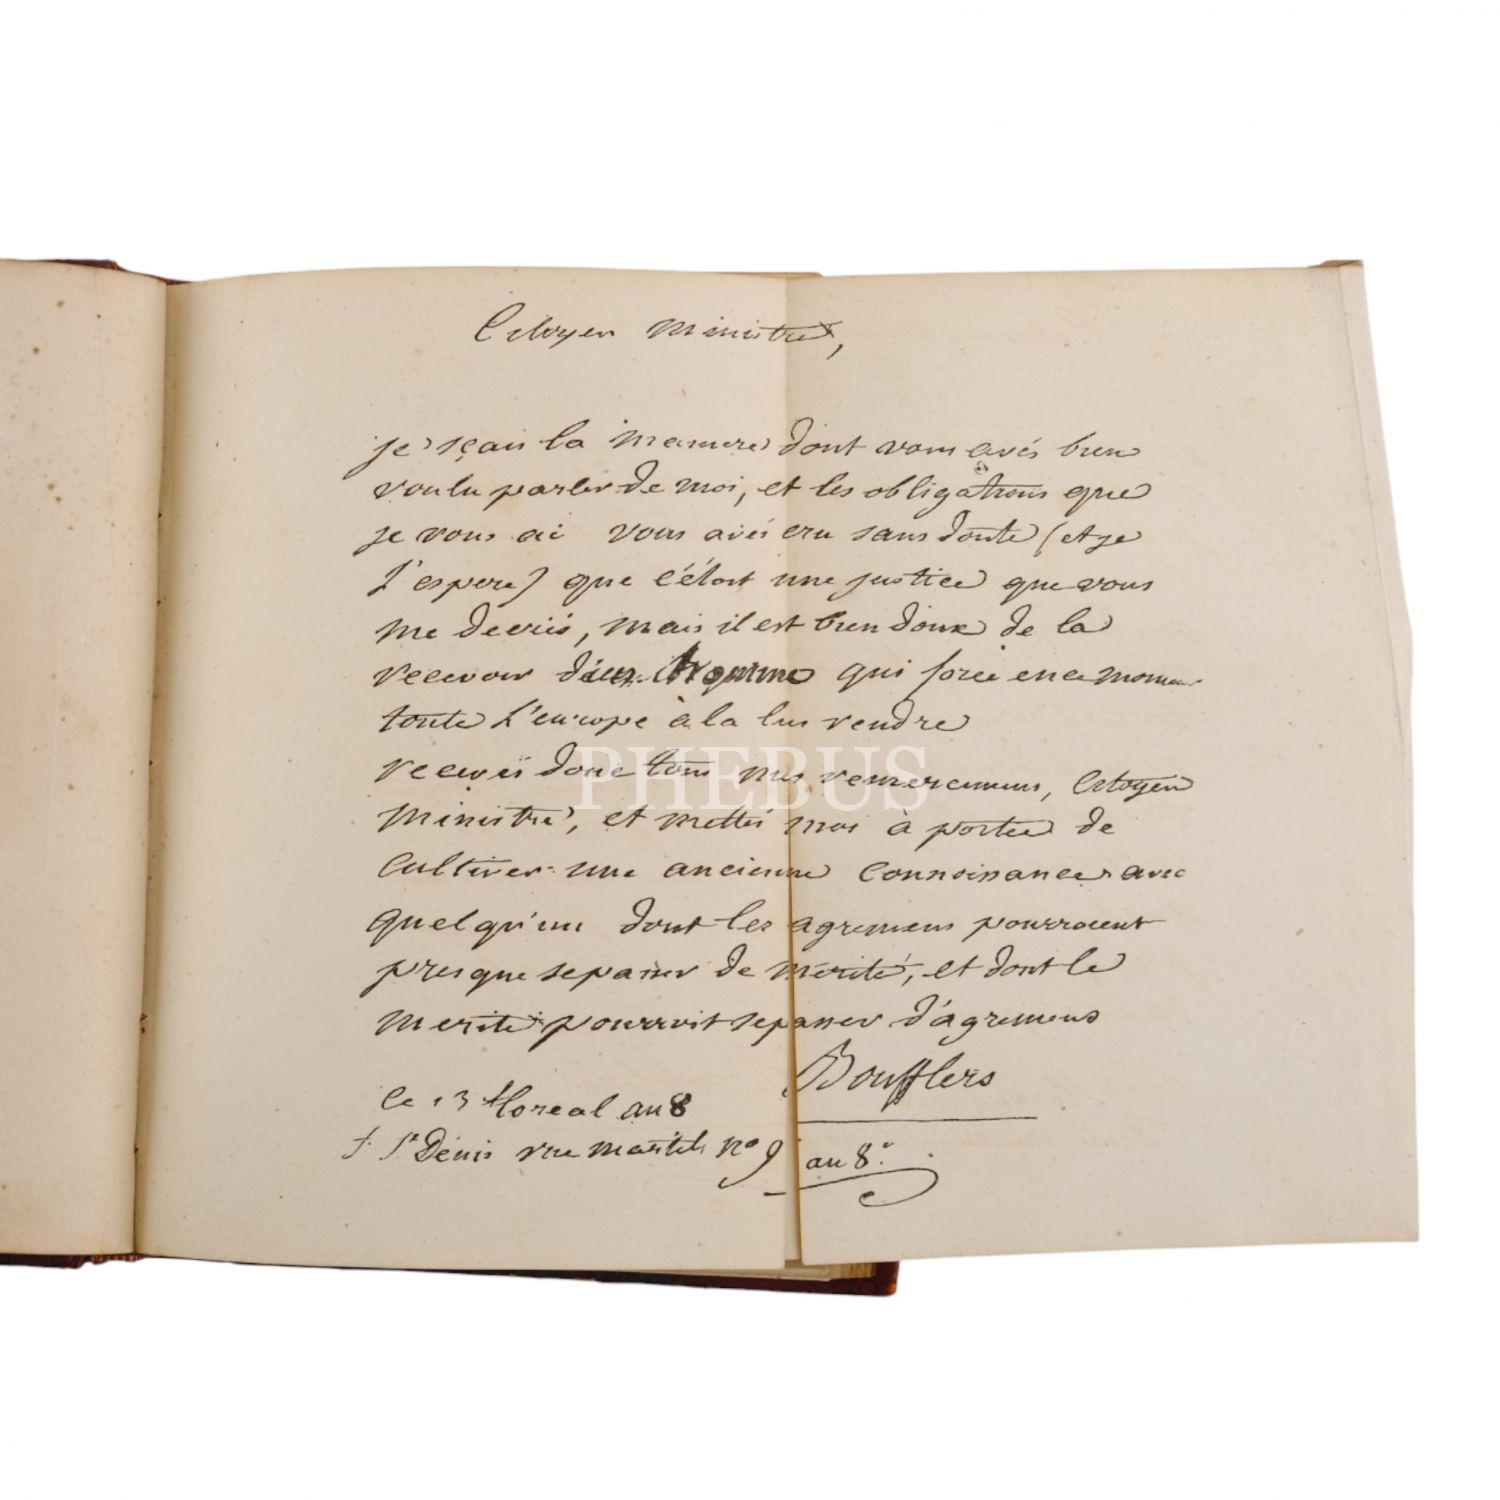 Citoyen Ministre,
je sçais la maniere dont vous avés bien
voulu parler de moi, et les obligations que
je vous ai vous avés cru sans doute (et je
l'espere) que c'étoit une justice que vous
me deviés, mais il est bien doux de la
recevoir d'un homme qui force en ce moment
toute l'europe à la lui rendre
recevés donc tous mes remercimens, Citoyen
Ministre, et mettés moi à portée de
cultiver une ancienne connoissance avec
quelqu'un dont les agremens pourroient
presque se passer de mérite, et dont le
merite pourroit se passer d'agremens
Boufflers
le 13 floreal au 8
f. St Denis rue n° 9 au 8.
PHEBUS